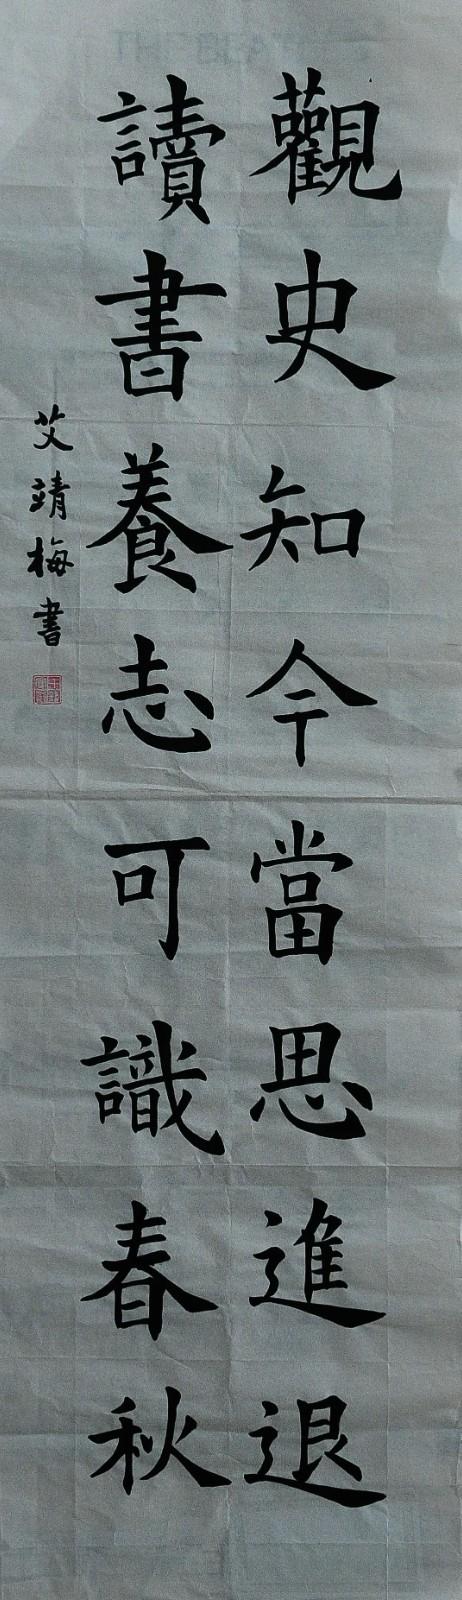 觀史知今當思進退
讀書養志可識春秋
艾靖梅書